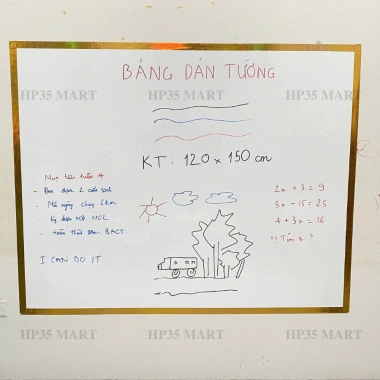 HP35 MART HP35 MART HP35 MART
BẢNG DÁN TƯỜNG
KT: 120 x 150 cm
HP35 MART HP35 MART HP35 MART
Mục tiêu tuần 4
- Đọc được 2 cuốn sách
- Mỗi ngày chạy
- Ký được HĐ
- Hoàn
I CAN DO IT
2x + 3 = 9
5x - 15 = 25
4 + 3x = 16
Tìm x ?
HP35 MART HP35 MART HP35 MART